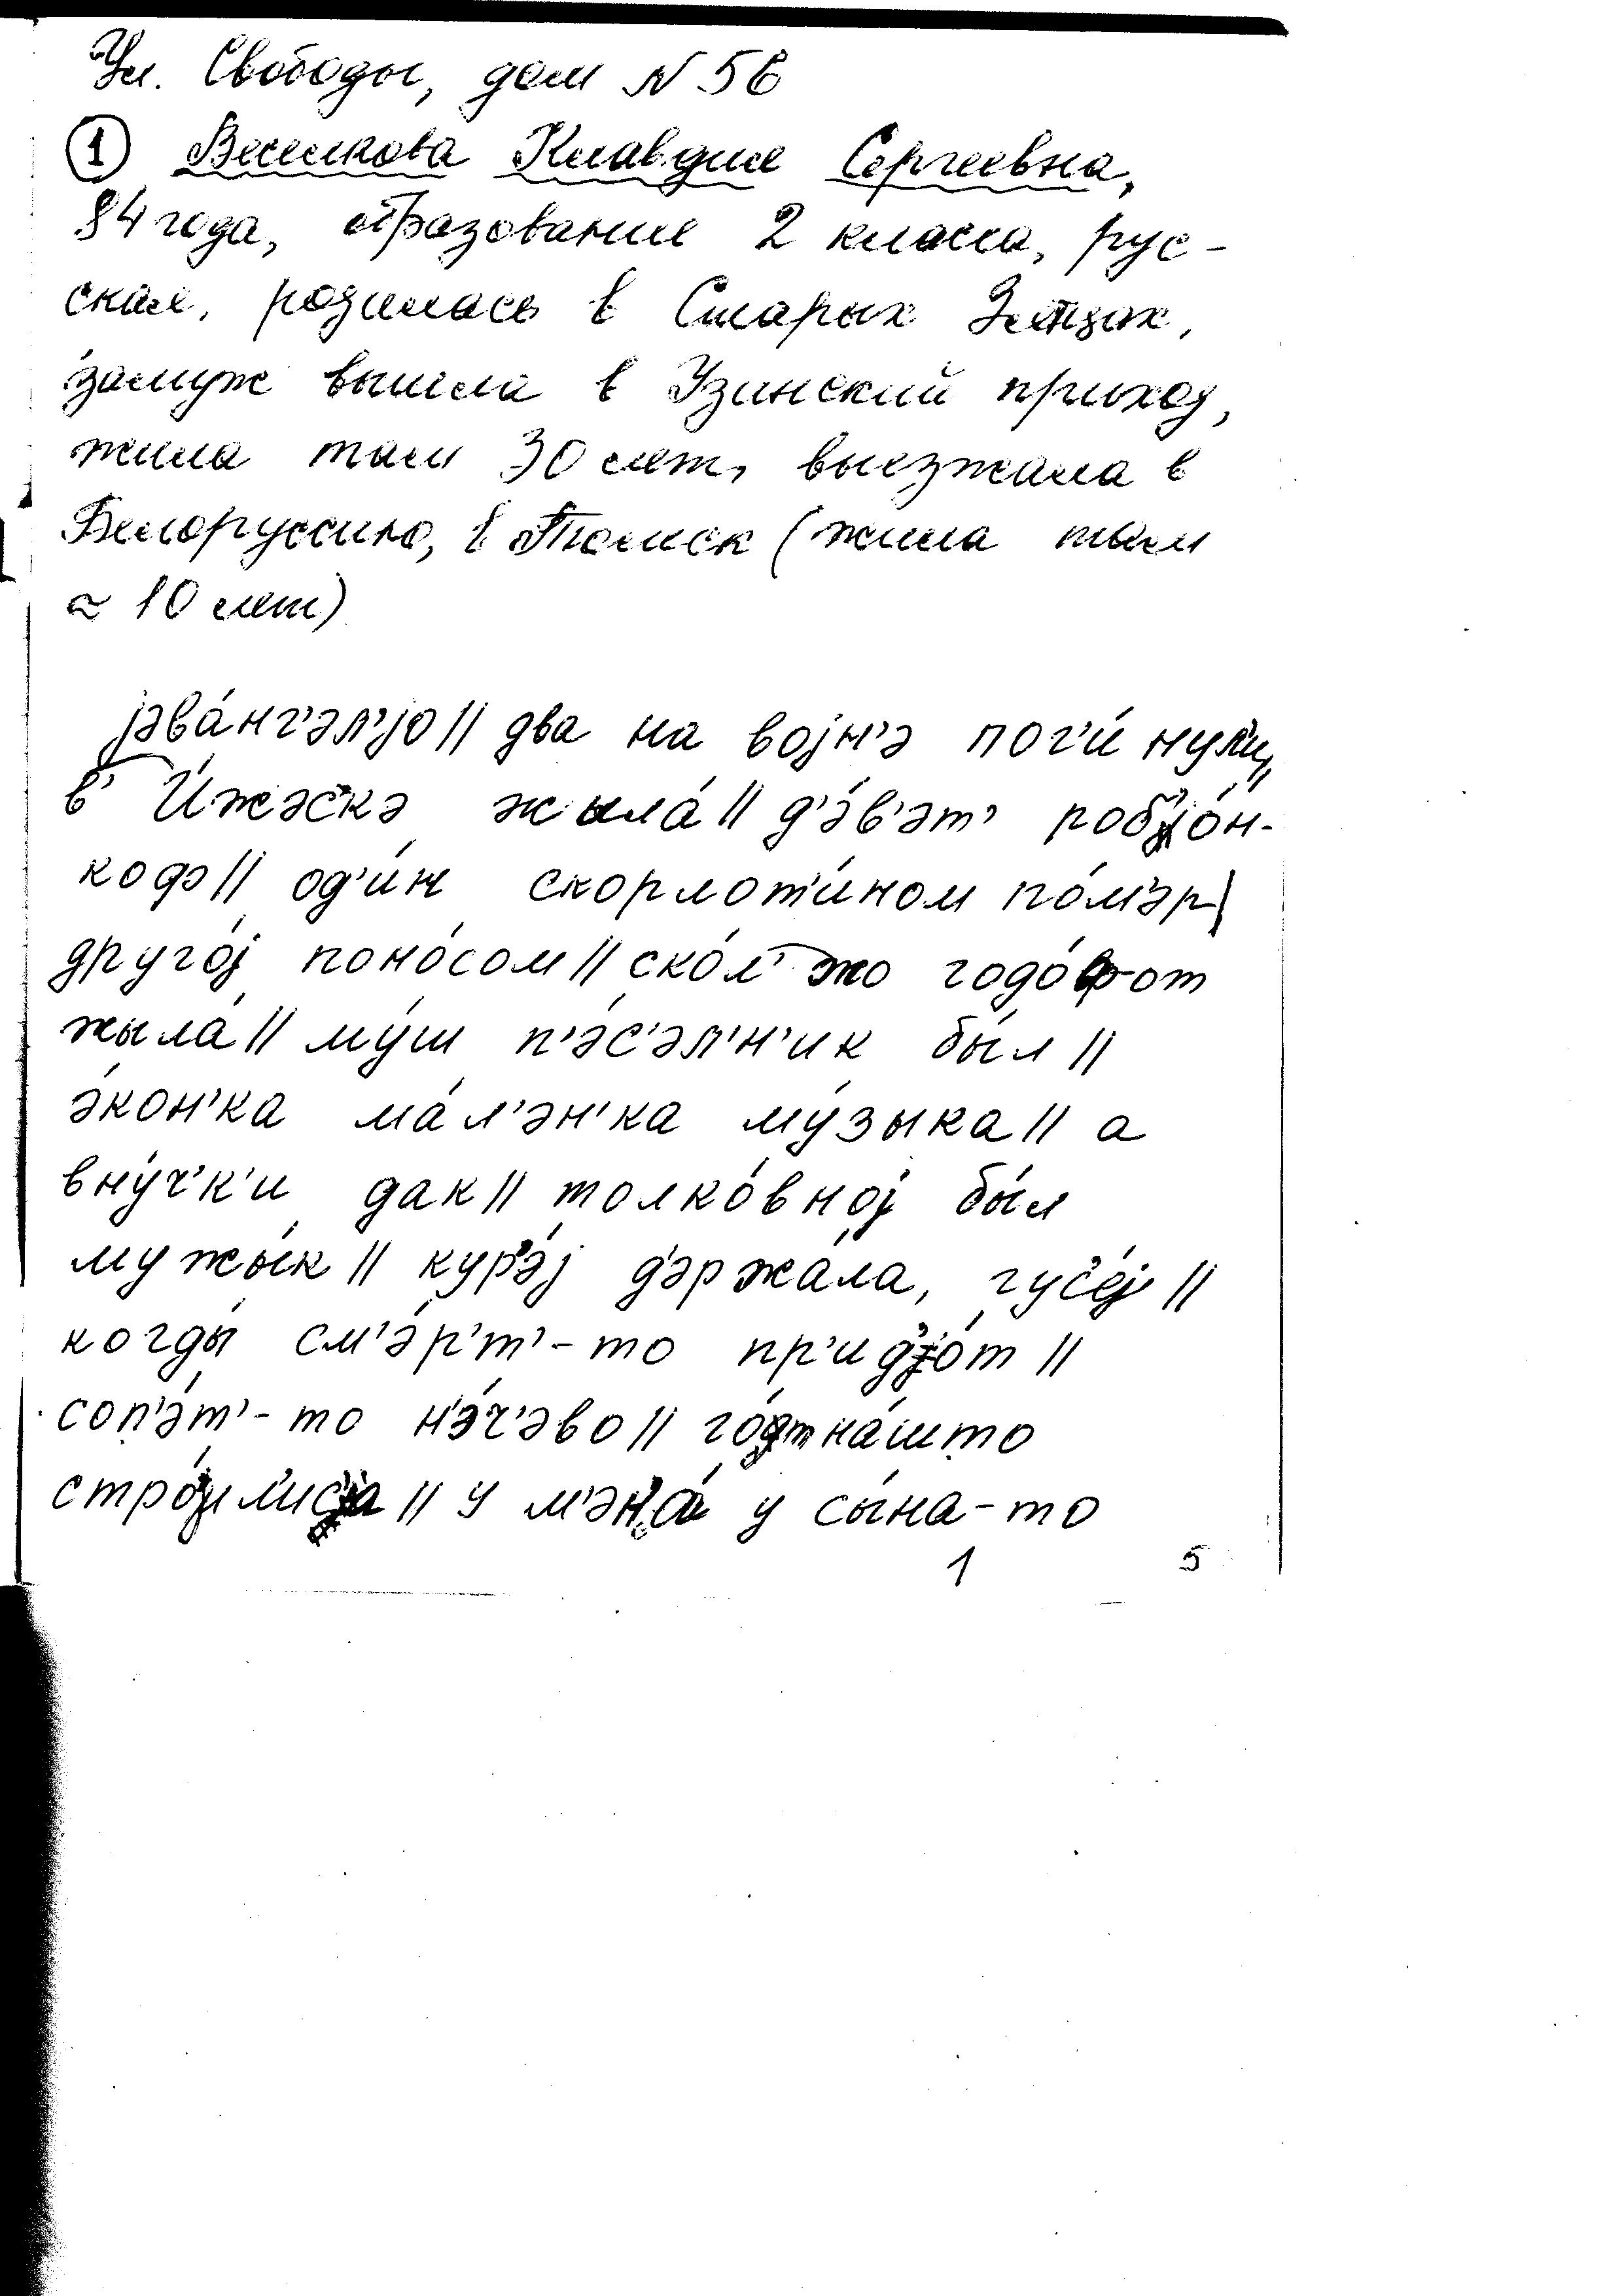 Ул. Свободы, дом N 56
① Веселкова Клавдия Сергеевна,
84 года, образование 2 класса, рус-
ская, родилась в Старых Зятцах,
замуж вышла в Узинский приход,
жила там 30 лет, выезжала в
Белоруссию, в Томск (жила там
≈ 10 лет)
јэва́нг'эл'јо // два на војн'э пог'и́нул'и //
в И́жэскэ жыла́ // д'э́в'эт' роб'о́н-
коф // од'и́н скорлот'и́ном по́м'эр /
друго́ј поно́сом // ско́л' жо годо́ф-от
жыла́ // му́ш п'э́с'эл'н'ик бы́л //
э́кон'ка ма́л'эн'ка му́зыка // а
вну́ч'к'и дак // толко́вној бы́л
мужы́к // кур'э́ј д'эржа́ла, гус'е́ј //
когды́ см'э́р'т'-то пр'ид'о́т //
соп'э́т'-то н'э́ч'эво // го́т на́што
стро́јил'ис'а // у м'эн'а́ у сы́на-то
1 5